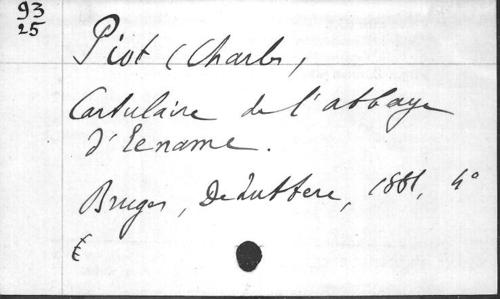 93
25
Piot (Charles)
Cartulaire de l'abbaye
d'Eename.
Bruges, De Zuttere, 1881, 4°